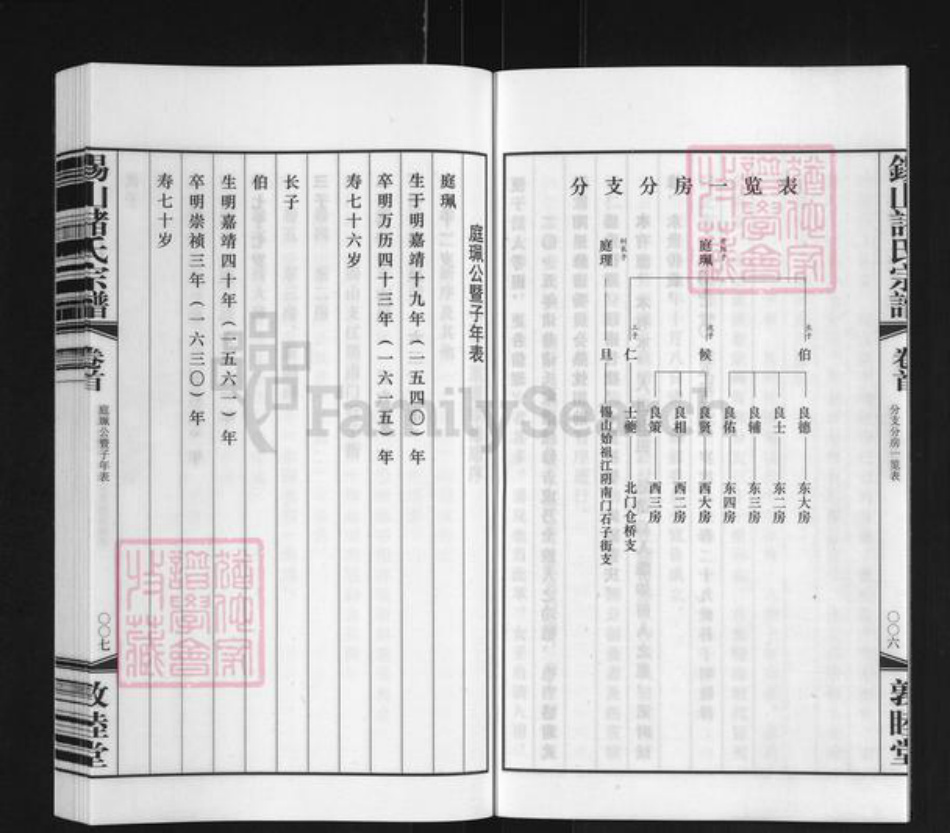 锡山諸氏宗譜
卷首
分支分房一览表
〇〇六
敦睦堂
分支分房一览表
长子
伯
良德
东大房
良士
东二房
良辅
东三房
良佑
东四房
庭珮
次子
候
良贤
西大房
良相
西二房
良策
西三房
三子
仁
北门仓桥支
庭理
旦
锡山始祖江阴南门石子街支
庭珮公暨子年表
庭珮
生于明嘉靖十九年（一五四〇）年
卒明万历四十三年（一六一五）年
寿七十六岁
长子
伯
生明嘉靖四十年（一五六一）年
卒明崇祯三年（一六三〇）年
寿七十岁
锡山諸氏宗譜
卷首
庭珮公暨子年表
〇〇七
敦睦堂
FamilySearch